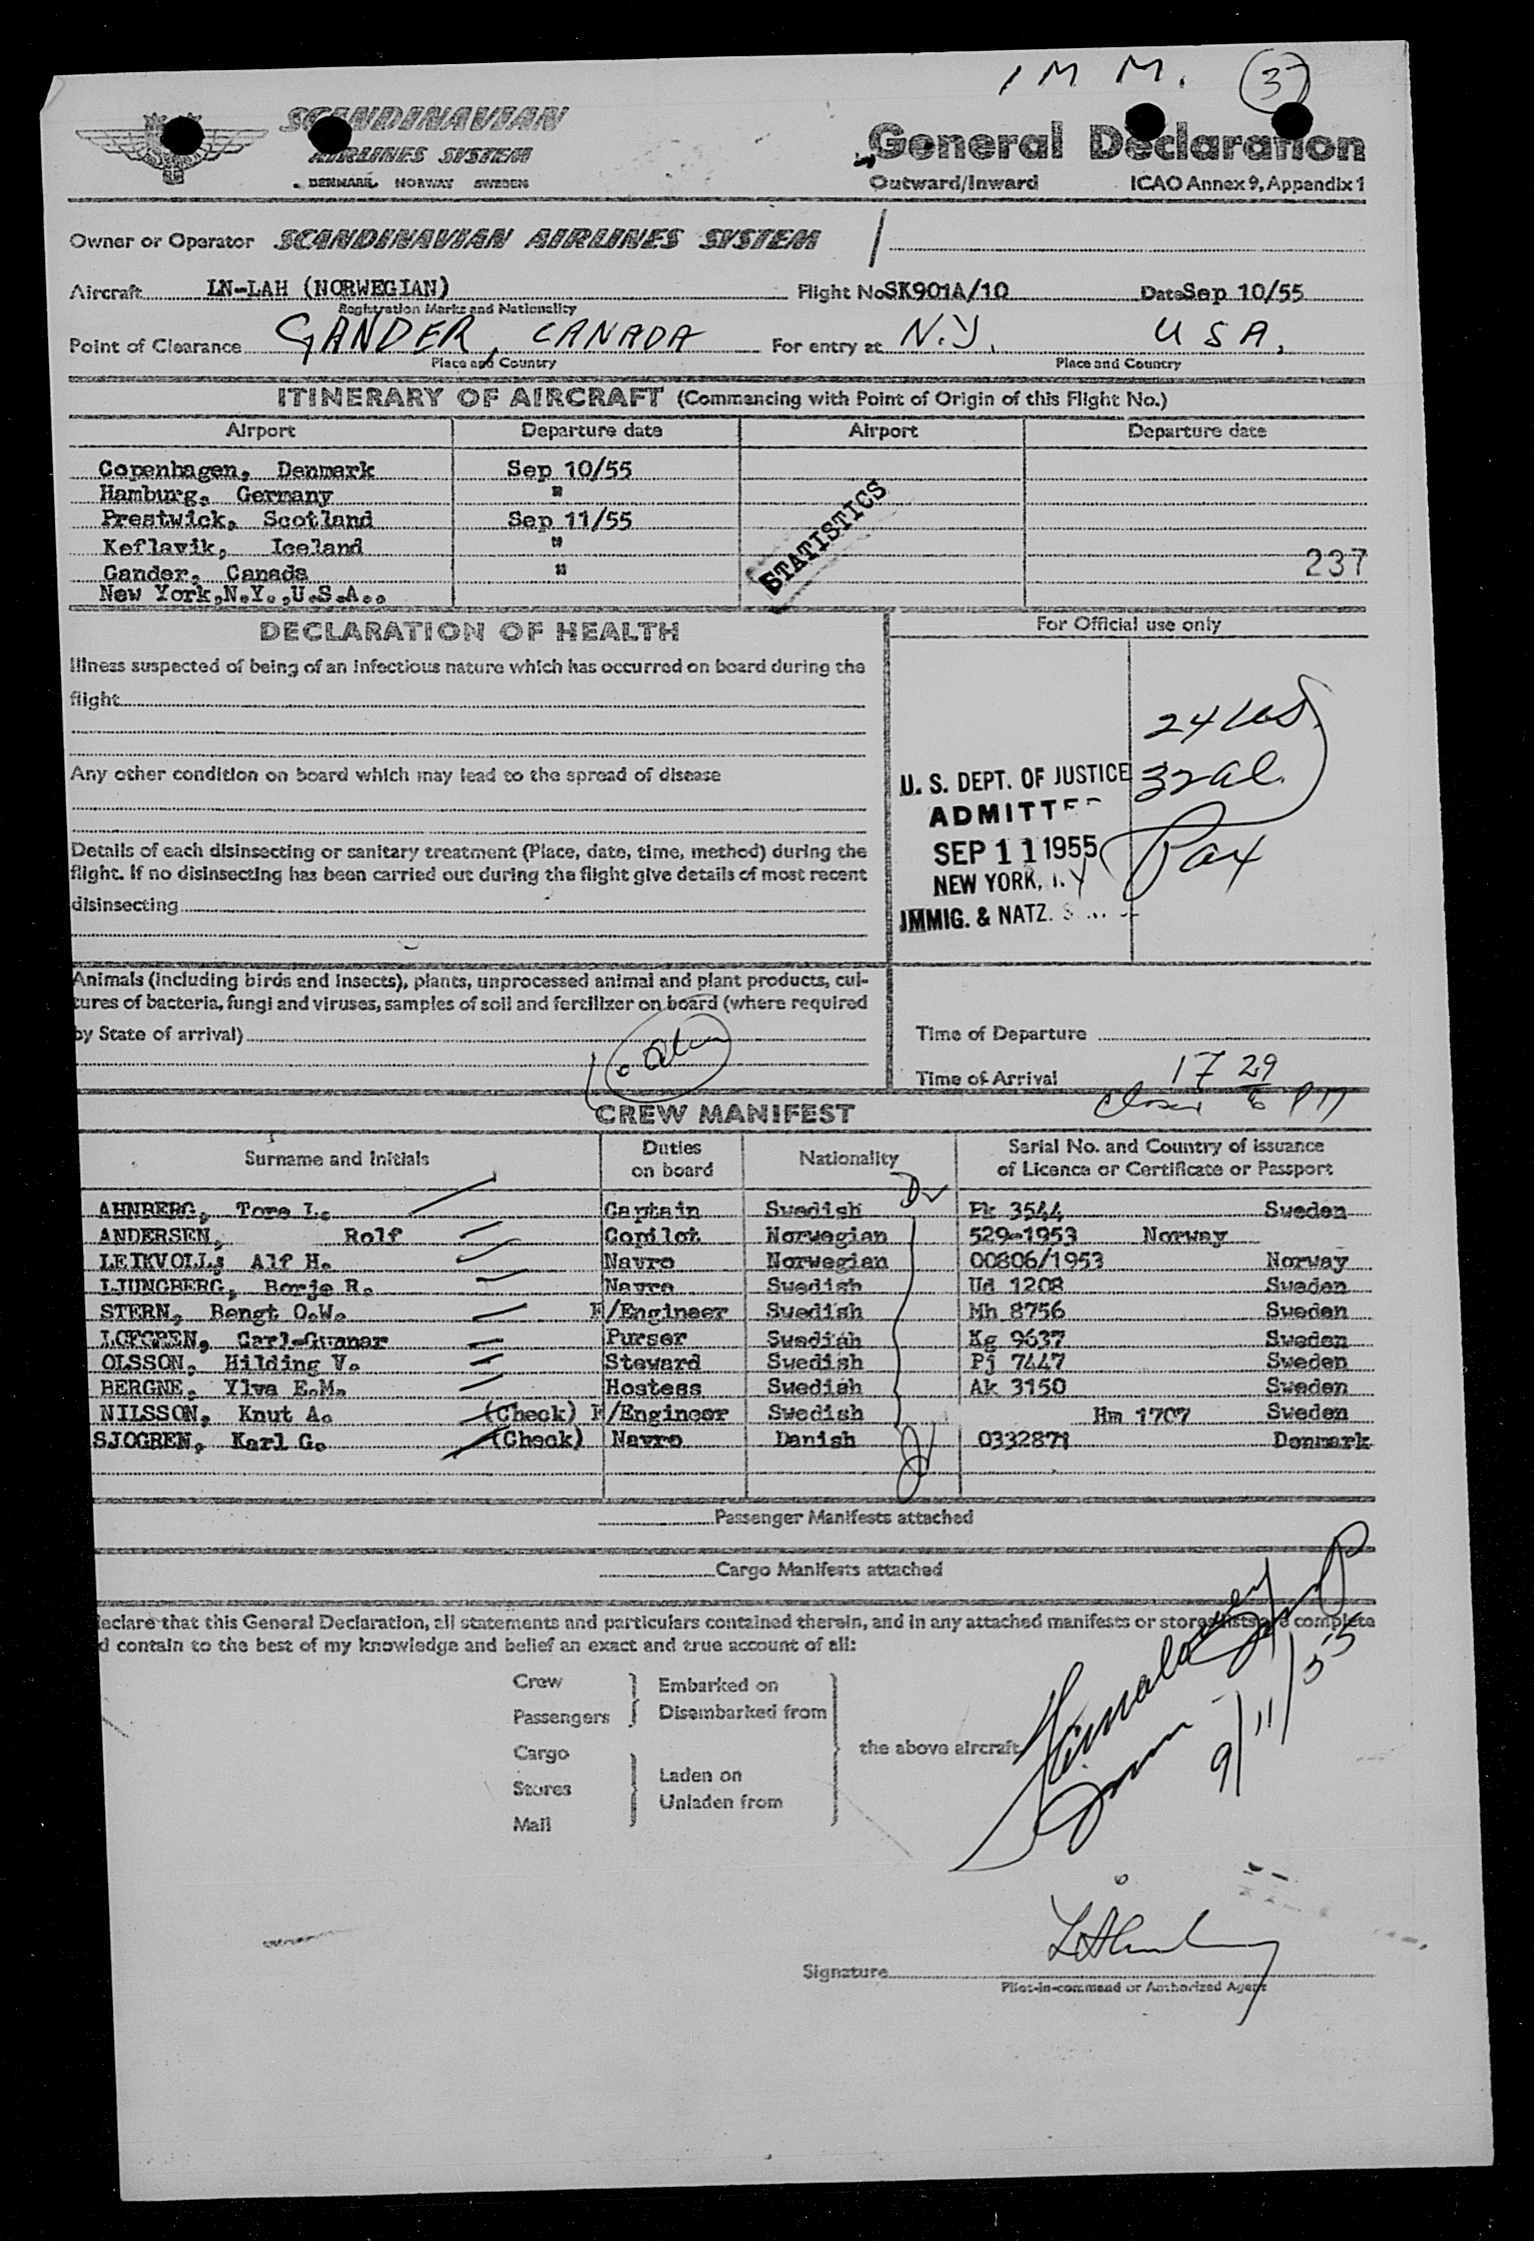 1 M M. 37
SCANDINAVIAN
AIRLINES SYSTEM
DENMARK NORWAY SWEDEN
General Declaration
Outward/Inward ICAO Annex 9, Appendix 1
Owner or Operator SCANDINAVIAN AIRLINES SYSTEM
Aircraft LN-LAH (NORWEGIAN) Flight No SK901A/10 Date Sep 10/55
Registration Marks and Nationality
Point of Clearance GANDER, CANADA For entry at N.Y. U S A.
Place and Country Place and Country
ITINERARY OF AIRCRAFT (Commencing with Point of Origin of this Flight No.)
Airport Departure date Airport Departure date
Copenhagen, Denmark Sep 10/55
Hamburg, Germany "
Prestwick, Scotland Sep 11/55
Keflavik, Iceland "
Gander, Canada "
New York,N.Y.,U.S.A..
STATISTICS
237
DECLARATION OF HEALTH
For Official use only
Illness suspected of being of an infectious nature which has occurred on board during the
flight
Any other condition on board which may lead to the spread of disease
Details of each disinsecting or sanitary treatment (Place, date, time, method) during the
flight. If no disinsecting has been carried out during the flight give details of most recent
disinsecting
U. S. DEPT. OF JUSTICE
ADMITTED
SEP 11 1955
NEW YORK, N.Y
IMMIG. & NATZ.
24 US
32 al.
Pax
Animals (including birds and insects), plants, unprocessed animal and plant products, cul-
tures of bacteria, fungi and viruses, samples of soil and fertilizer on board (where required
by State of arrival)
Time of Departure
Time of Arrival 17 29
6 PM
CREW MANIFEST
Surname and Initials Duties on board Nationality Serial No. and Country of issuance of Licence or Certificate or Passport
AHNBERG, Tore L. Captain Swedish Pk 3544 Sweden
ANDERSEN, Rolf Copilot Norwegian 529-1953 Norway
LEIKVOLL, Alf H. Navro Norwegian 00806/1953 Norway
LJUNGBERG, Borje R. Navro Swedish Ud 1208 Sweden
STERN, Bengt O.W. F/Engineer Swedish Mh 8756 Sweden
LOFGREN, Carl-Gunnar Purser Swedish Kg 9637 Sweden
OLSSON, Hilding V. Steward Swedish Pj 7447 Sweden
BERGNE, Ylva E.M. Hostess Swedish Ak 3150 Sweden
NILSSON, Knut A. (Check) F/Engineer Swedish Hm 1707 Sweden
SJOGREN, Karl G. (Check) Navro Danish 0332871 Denmark
Passenger Manifests attached
Cargo Manifests attached
eclare that this General Declaration, all statements and particulars contained therein, and in any attached manifests or stores lists are complete
d contain to the best of my knowledge and belief an exact and true account of all:
Crew
Passengers
Embarked on
Disembarked from
Cargo
Stores
Mail
Laden on
Unladen from
the above aircraft
9/11/55
Signature
Pilot-in-command or Authorized Agent